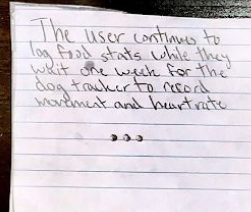 The user continues to
log food stats while they
wait one week for the
dog tracker to record
movement and heart rate
...